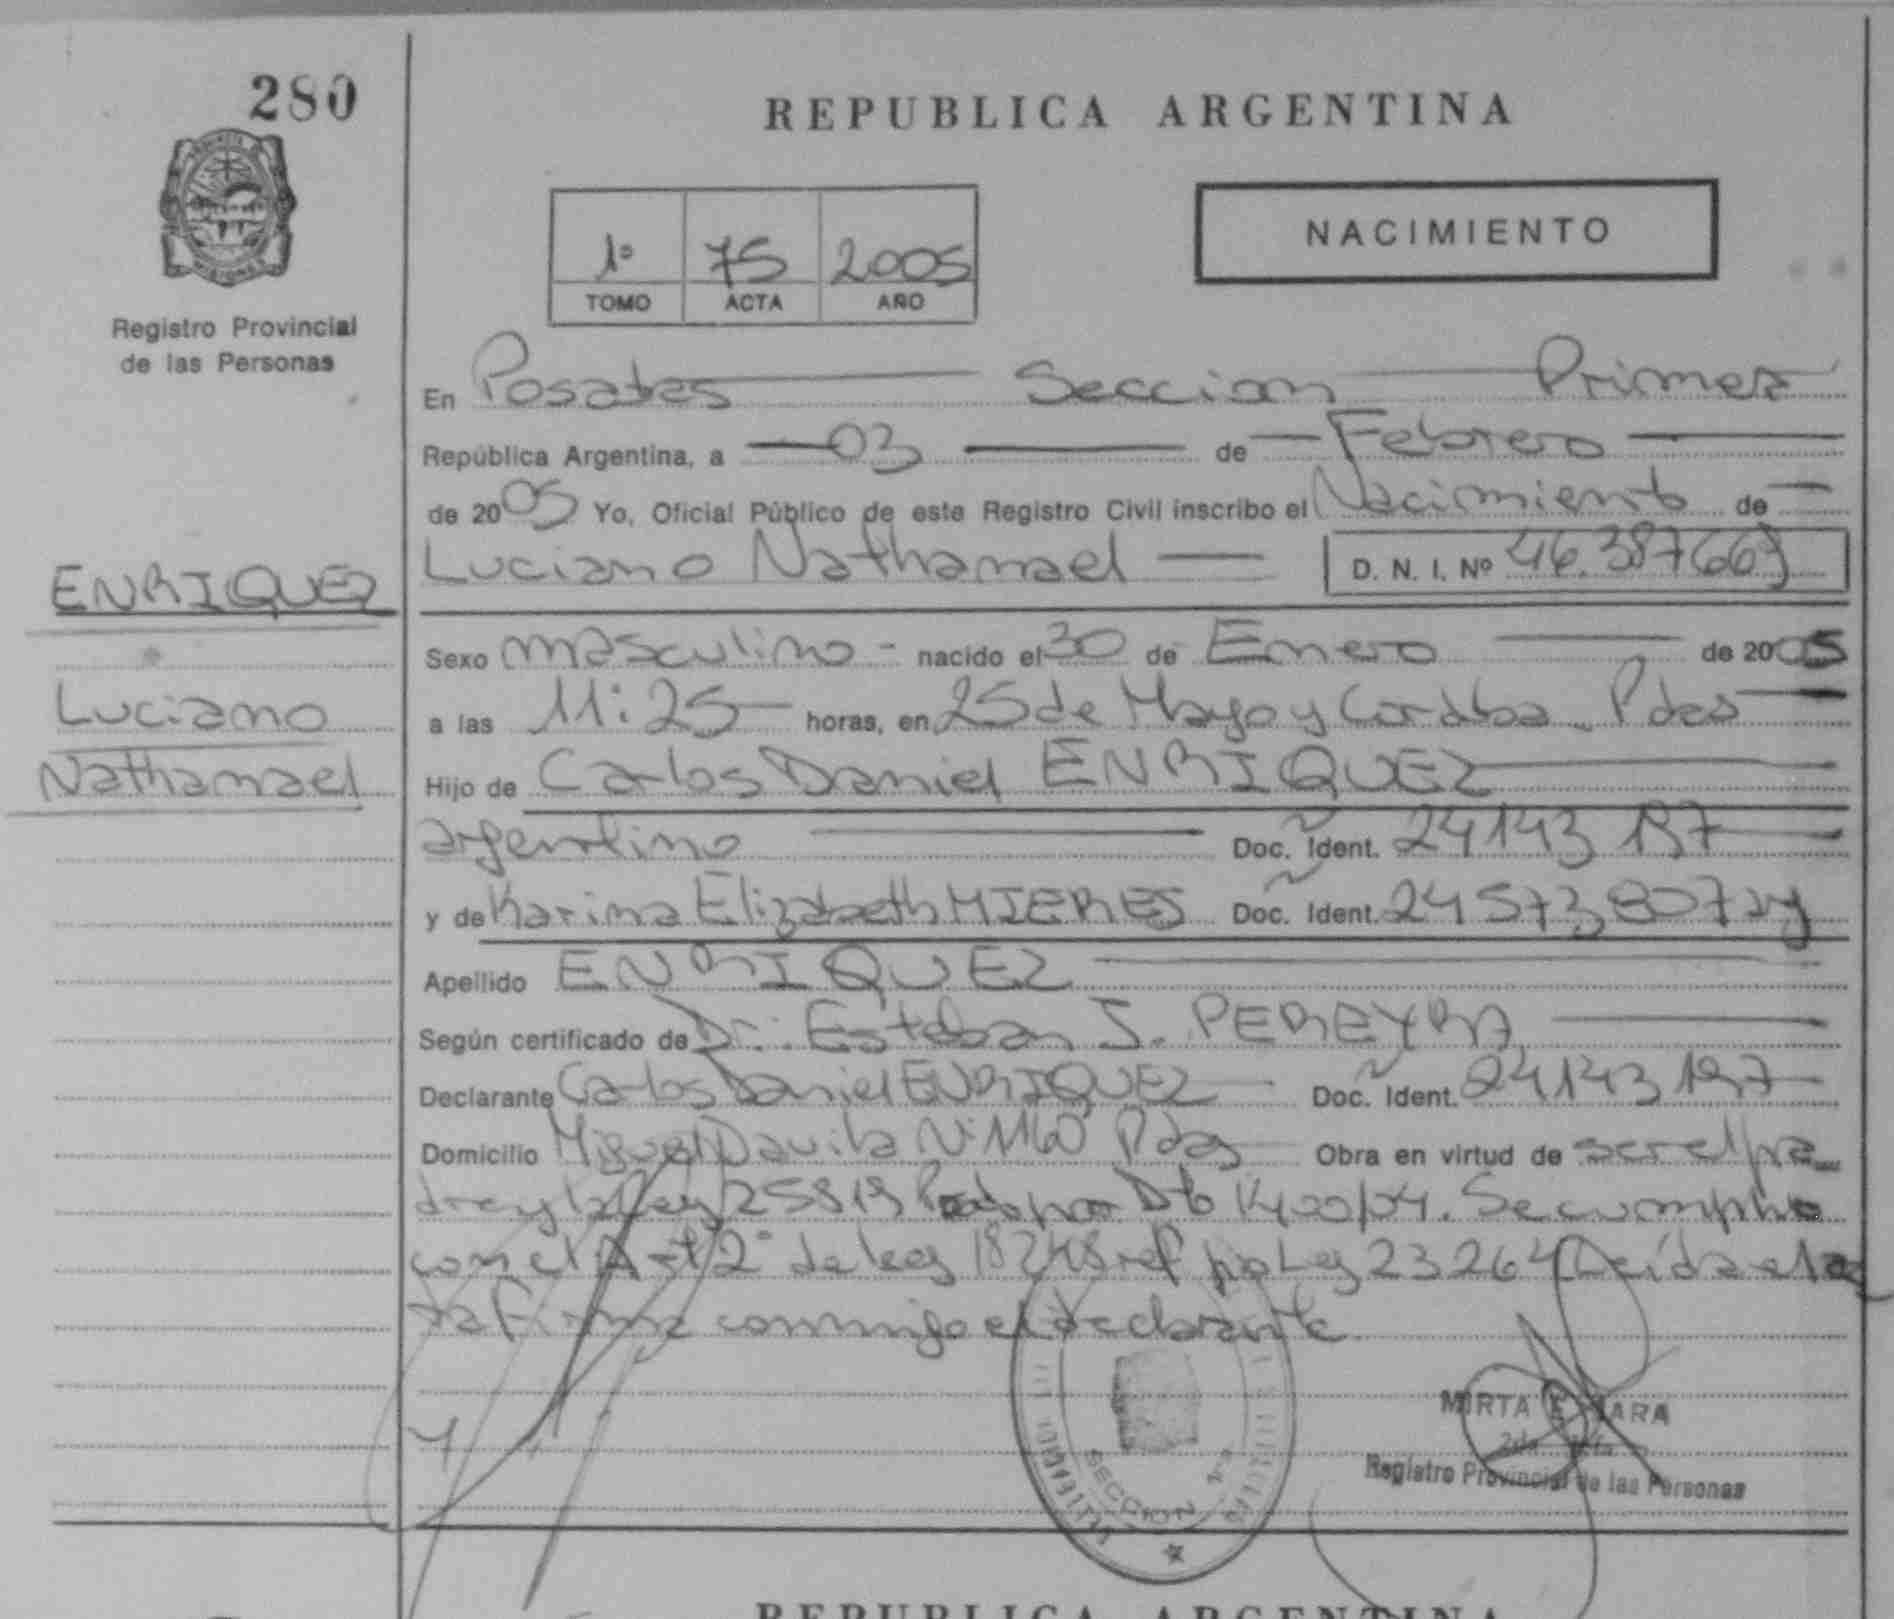 280
REPUBLICA ARGENTINA
NACIMIENTO
1º 75 2005
TOMO ACTA AÑO
Registro Provincial
de las Personas
En Posadas Seccion Primera
República Argentina, a 03 de Febrero
de 2005 Yo, Oficial Público de este Registro Civil inscribo el Nacimiento de
Luciano Nathanael D. N. I. Nº 46.387669
ENRIQUEZ
Luciano
Nathanael
Sexo masculino - nacido el 30 de Enero de 2005
a las 11:25 horas, en 25 de Mayo y Cordoba Pdas
Hijo de Carlos Daniel ENRIQUEZ
argentino Doc. Ident. 24143197
y de Karina Elizabeth MIERES Doc. Ident. 24573807 arg
Apellido ENRIQUEZ
Según certificado de Dr: Esteban J. PEREYRA
Declarante Carlos Daniel ENRIQUEZ Doc. Ident. 24143197
Domicilio Miguel Davila Nº1160 Pdas Obra en virtud de ser el pa
dre y la Ley 25819 por Dto 1400/04. Se cumplio
con el Art 2º de Ley 18248 ref por Ley 23264 Leída el ac
ta firma conmigo el declarante
SECCION 1ra
MIRTA JARA
Registro Provincial de las Personas
REPUBLICA ARGENTINA